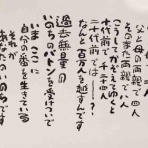 父と母の両親で四人
そのまた両親で八人
こうしてかぞえてゆくと
十代前で千二十四人
二十代前では―?
なんと百万人を越すんです
過去無量の
いのちのバトンを受けついで
いま ここに
自分の番を生きている
それが
あなたのいのちです